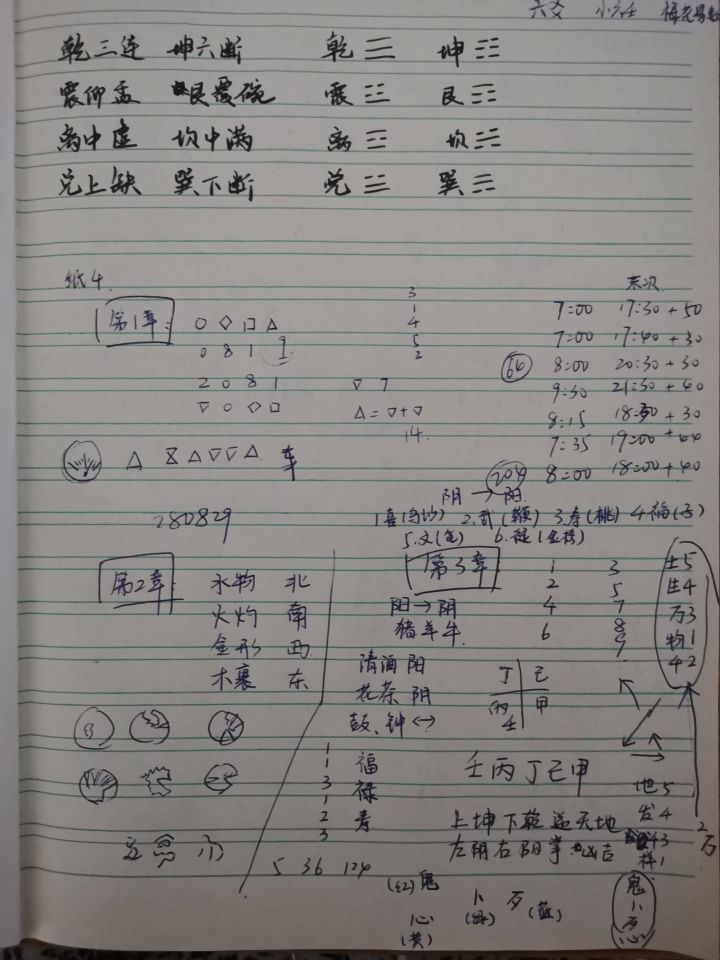 六爻 小六壬 梅花易
乾三连 坤六断 乾 ☰ 坤 ☷
震仰盂 艮覆碗 震 ☳ 艮 ☶
离中虚 坎中满 离 ☲ 坎 ☵
兑上缺 巽下断 兑 ☱ 巽 ☴
纸4.
第1章: ○ ◇ □ △
0 8 1 9
2 0 8 1
▽ ○ ◇ □
3
1
4
5
2
▽ 7
△=▽+▽
14.
末次
7:00 17:30+50
7:00 17:40+30
64 8:00 20:30+30
9:30 21:30+40
8:15 18:30+30
7:35 19:00+44
204 8:00 18:00+40
△ ⧖ △ ▽ ▽ △ 车
280829
阴→阳
1.喜 2.武(鞭) 3.寿(桃) 4.福
5.文 6.禄
第2章: 水物 北
火灼 南
金形 西
木裹 东
8
第3章:
阳→阴
猪羊牛
清酒 阳
花茶 阴
鼓、钟 ↔
1 3
2 5
4 7
6 8
9
土5
生4
万3
物1
42
丁 己
丙 甲
壬
壬丙丁己甲
1
1
3
1
2
3
福
禄
寿
5 36 124
上坤下乾逆天地
左阴右阳掌凶吉
地5
发4
3
样1
2万
(红)鬼
心
(黄)
卜
(绿)
歹(蓝)
鬼
卜
歹
心